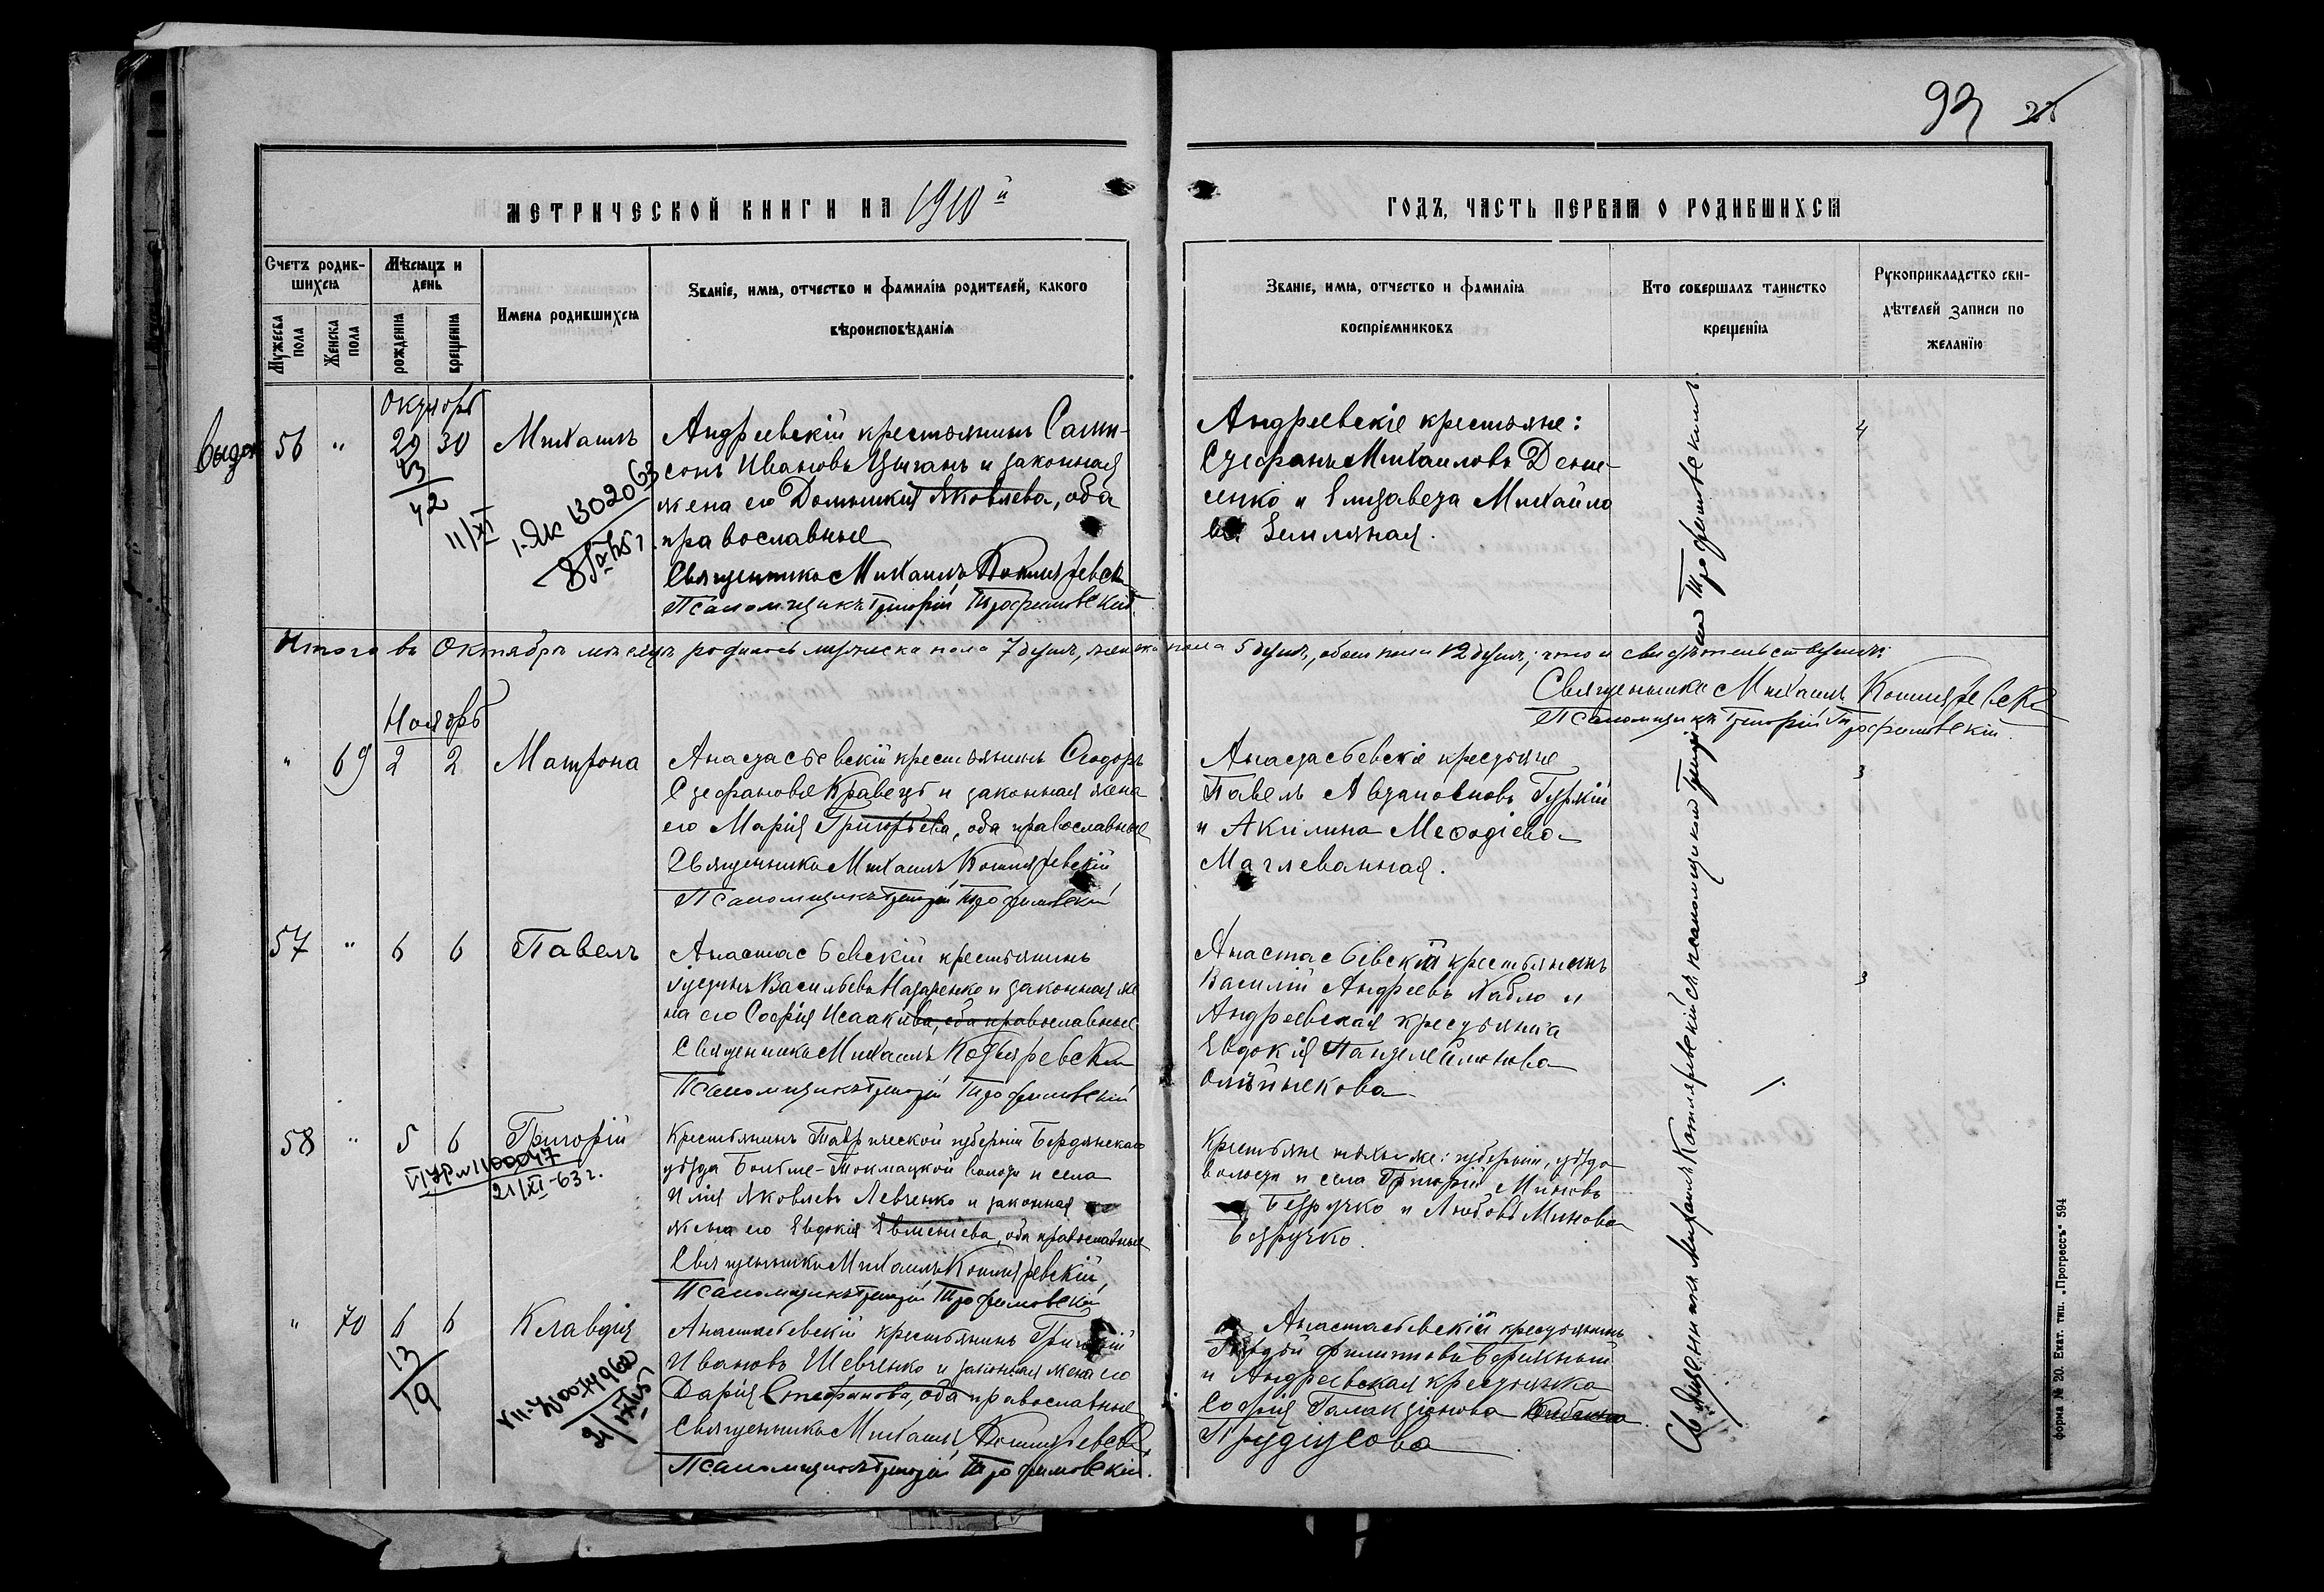 93
МЕТРИЧЕСКОЙ КНИГИ НА 1910й
ГОДЪ, ЧАСТЬ ПЕРВАЯ О РОДИВШИХСЯ
Счетъ родив-
шихся
Мужеска пола
Женска пола
Мѣсяцъ и
день
рожденія
крещенія
Имена родившихся
Званіе, имя, отчество и фамилія родителей, какого
вѣроисповѣданія
Званіе, имя, отчество и фамилія
воспріемниковъ
Кто совершалъ таинство
крещенія
Рукоприкладство сви-
дѣтелей записи по
желанію
Октябрь
56 " 29 30 Михаилъ
13
42
11/XI
Андреевскій крестьянинъ Самп-
сонъ Ивановъ Цыганъ и законная
жена его Домникия Яковлева, оба
православные
Священникъ Михаилъ Котляревскій
Псаломщикъ Григорій Трофимовскій
Андреевскіе крестьяне:
Стефанъ Михаиловъ Дени-
сенко и Елизавета Михайло
ва Земляная.
4
Итого въ Октябрѣ мѣсяцѣ родилось мужеска пола 7 душъ, женска пола 5 душъ, обоего пола 12 душъ; что и свидѣтельствуемъ:
Священникъ Михаилъ Котляревскій
Псаломщикъ Григорій Трофимовскій.
Ноябрь
" 69 2 2 Матрона
Анастасьевскій крестьянинъ Ѳеодоръ
Стефановъ Кравецъ и законная жена
его Марія Григорьева, оба православные
Священникъ Михаилъ Котляревскій
Псаломщикъ Григорій Трофимовскій
Анастасьевскіе крестьяне
Павелъ Автономовъ Гуржій
и Акилина Меѳодіева
Магляванная.
3
57 " 6 6 Павелъ
Анастасьевскій крестьянинъ
Іустинъ Васильевъ Назаренко и законная же
на его Софія Исаакиева, оба православные
Священникъ Михаилъ Котляревскій
Псаломщикъ Григорій Трофимовскій
Анастасьевскій крестьянинъ
Василій Андреевъ Хабло и
Андреевская крестьянка
Евдокія Пантелеймонова
Олѣйникова
3
58 " 5 6 Григорій
21/XI-63г.
Крестьянинъ Таврической губерніи Бердянскаго
уѣзда Больше-Токмацкой волости и села
Илія Яковлевъ Левченко и законная
жена его Евдокія Евменіева, оба православные
Священникъ Михаилъ Котляревскій,
Псаломщикъ Григорій Трофимовскій
Крестьяне той же: губерніи, уѣзда
волости и села Григорій Миновъ
Безручко и Любовь Минова
Безручко.
" 70 6 6 Клавдія
13
19
Анастасьевскій крестьянинъ Григорій
Ивановъ Шевченко и законная жена его
Дарія Стефанова, оба православные
Священникъ Михаилъ Котляревскій,
Псаломщикъ Григорій Трофимовскій.
Анастасьевскій крестьянинъ
Гордѣй Филипповъ Бережный
и Андреевская крестьянка
Софія Галактіонова
Прудіусова
Священникъ Михаилъ Котляревскій съ псаломщикомъ Григоріемъ Трофимовскимъ.
форма № 20. Екат. тип. „Прогрессъ" 594